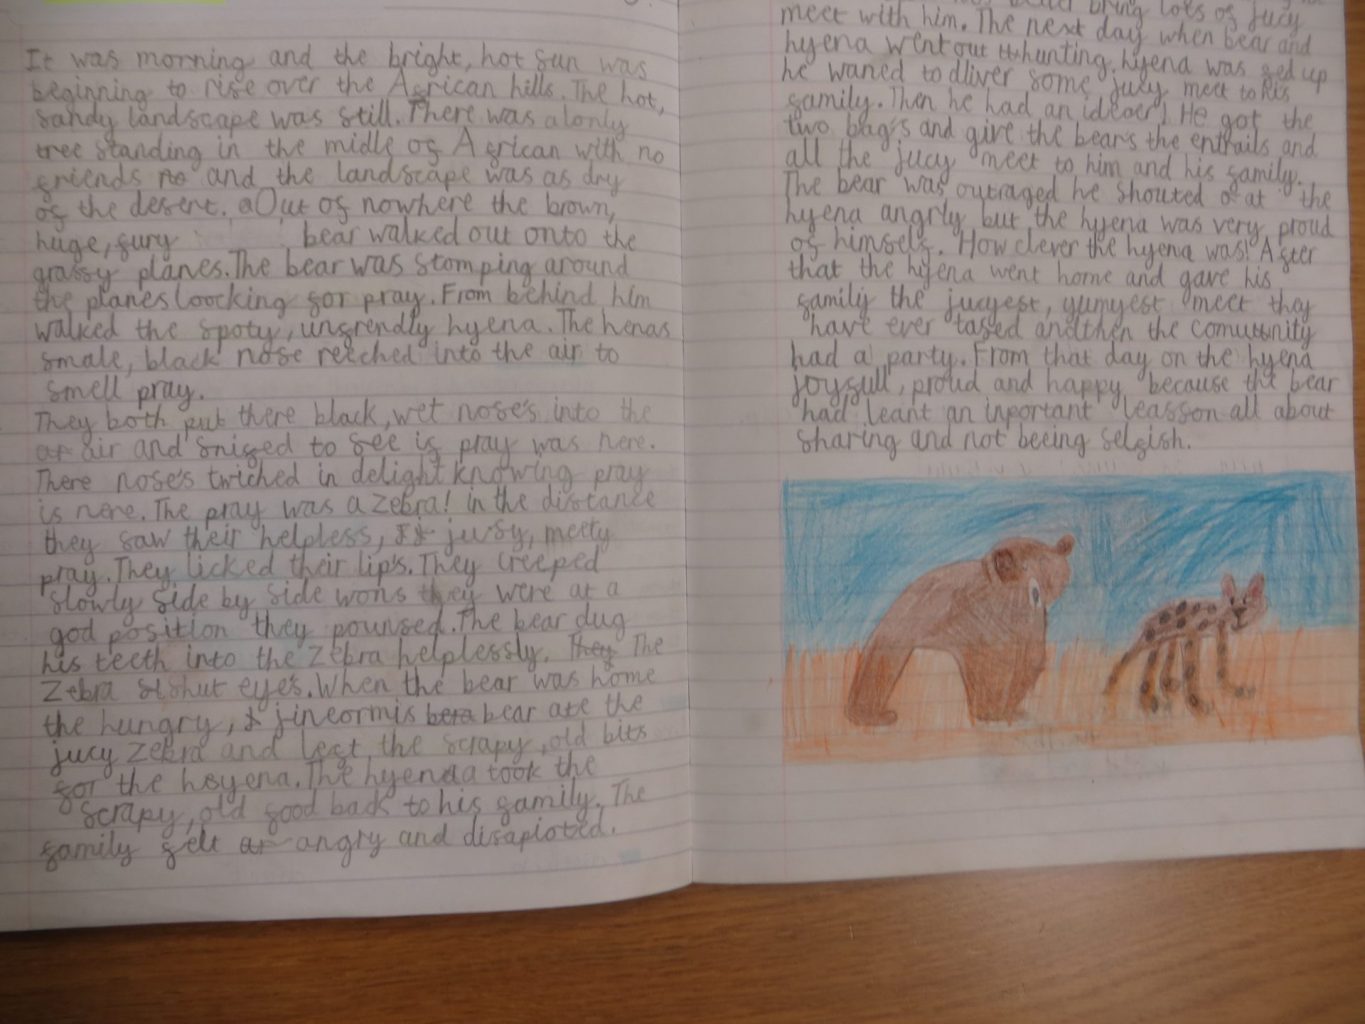 It was morning and the bright, hot sun was
beginning to rise over the African hills. The hot,
sandy landscape was still. There was a lonly
tree standing in the midle of African with no
friends no and the landscape was as dry
of the desert. aOut of nowhere the brown,
huge, fury bear walked out onto the
grassy planes. The bear was stomping around
the planes loocking for pray. From behind him
walked the spoty, unfrendly hyena. The henas
smale, black nose reeched into the air to
smell pray.
They both put there black, wet nose's into the
ar air and snifed to see if pray was here.
There nose's twiched in delight knowing pray
is here. The pray was a zebra! in the distance
they saw their helpless, jusy, meety
pray. They licked their lip's. They creeped
slowly side by side wons they were at a
god position they pounsed. The bear dug
his teeth into the zebra helplessly. They The
zebra shut eye's. When the bear was home
the hungry, jineormis bera bear ate the
jucy zebra and left the scrapy, old bits
for the hsyena. The hyenaa took the
scrapy, old food back to his family. The
family felt ar angry and disapioted.
bring lots of jucy
meet with him. The next day when bear and
hyena went out hunting. hyena was fed up
he waned to dliver some jucy meet to his
family. Then he had an ideoer! He got the
two bag's and give the bears the entrails and
all the jucy meet to him and his family.
The bear was outraged he shouted at the
hyena angrly but the hyena was very proud
of himself. How clever the hyena was! After
that the hyena went home and gave his
family the jucyest, yumyest meet they
have ever tased andthen the comunity
had a party. From that day on the hyena
joyfull, proud and happy because the bear
had leant an inportant leasson all about
sharing and not beeing selfish.